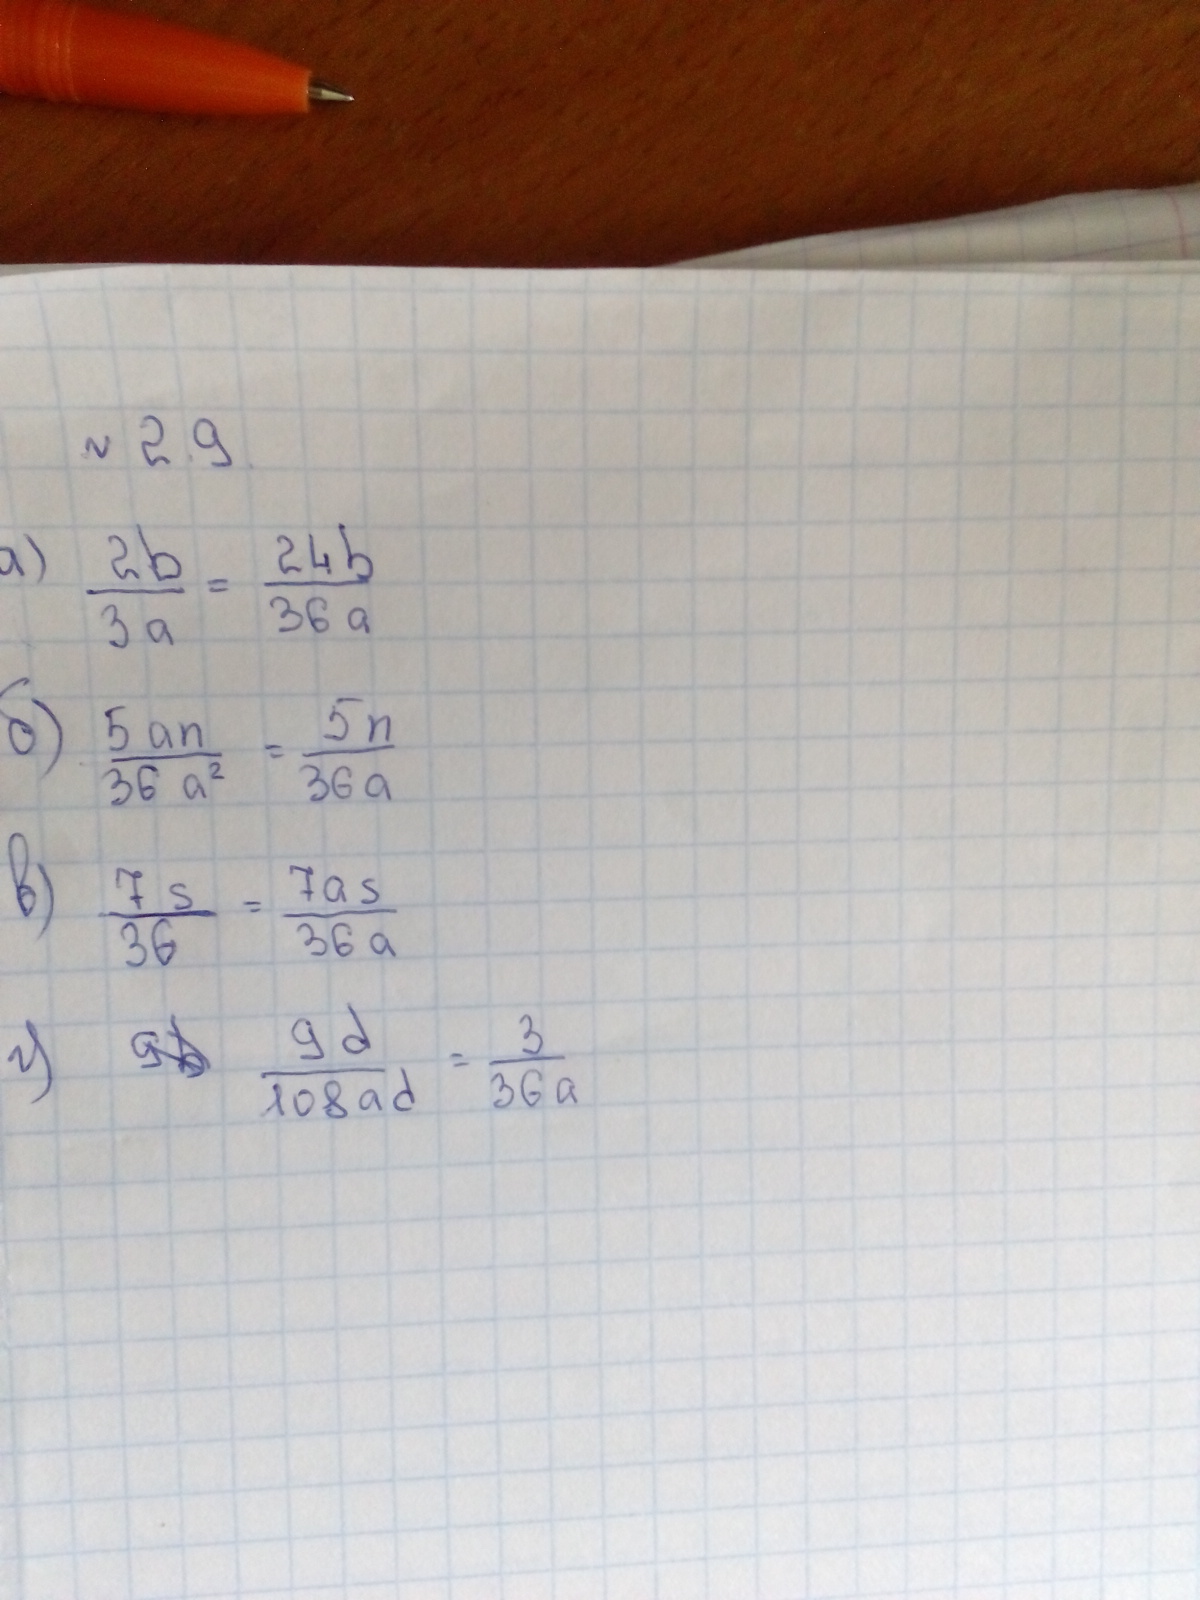 № 2.9.
а) 2b/3a = 24b/36a
б) 5an/36a² = 5n/36a
в) 7s/36 = 7as/36a
г) 9d/108ad = 3/36a